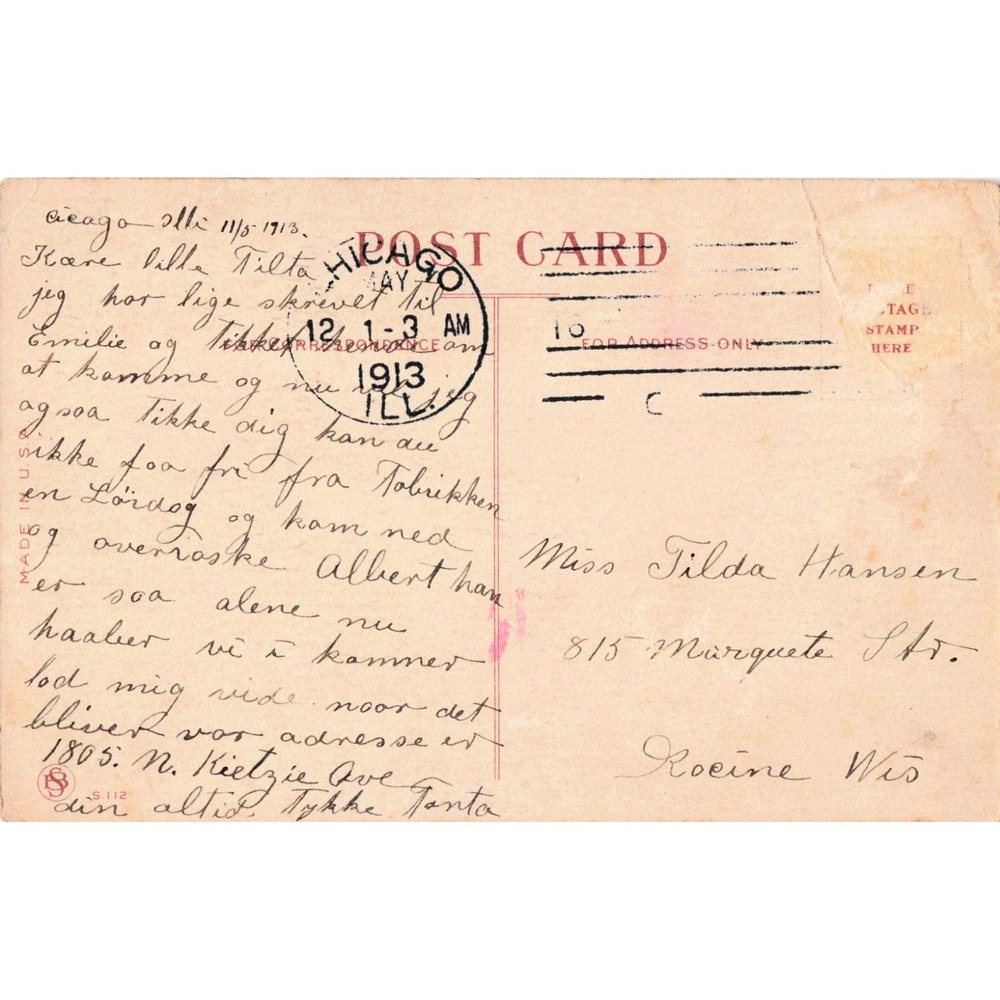 Cicago Illi 11/5-1913.
Kære lille Tilta
jeg har lige skrevet til
Emilie og tikket hende om
at komme og nu vil jeg
ogsaa tikke dig kan du
ikke faa fri fra Fabrikken
en Löïdag og kom ned
og overraske Albert han
er saa alene nu
haaber vi i kommer
lad mig vide naar det
bliver vor adresse er
1805. N. Kietzie Ave
din altid Tykke Tanta
POST CARD
CHICAGO
MAY
12 1-3 AM
1913
ILL.
FOR CORRESPONDENCE
FOR ADDRESS ONLY
STAMP
HERE
C
MADE IN U.S.A.
S.112
Miss Tilda Hansen
815 Marquete Str.
Rocine Wis